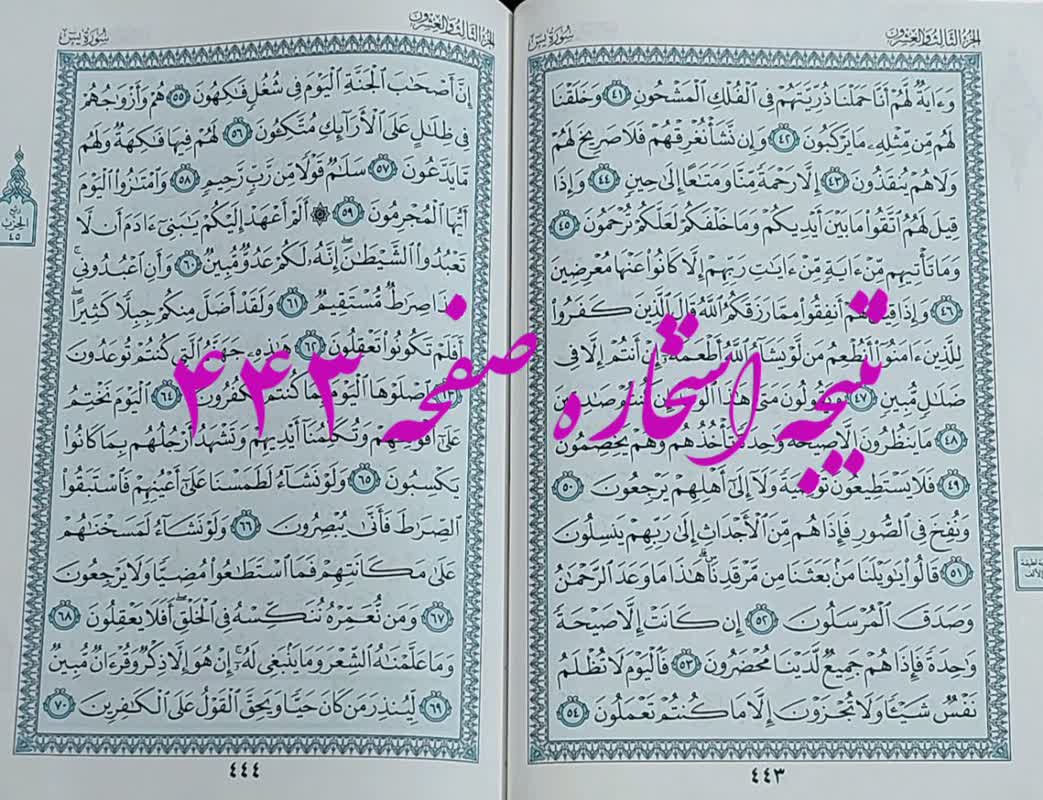 الجزء الثالث والعشرون
سورة يس
وَءَايَةٌ لَّهُمْ أَنَّا حَمَلْنَا ذُرِّيَّتَهُمْ فِي الْفُلْكِ الْمَشْحُونِ ٤١ وَخَلَقْنَا
لَهُم مِّن مِّثْلِهِ مَا يَرْكَبُونَ ٤٢ وَإِن نَّشَأْ نُغْرِقْهُمْ فَلَا صَرِيخَ لَهُمْ
وَلَا هُمْ يُنقَذُونَ ٤٣ إِلَّا رَحْمَةً مِّنَّا وَمَتَاعًا إِلَىٰ حِينٍ ٤٤ وَإِذَا
قِيلَ لَهُمُ اتَّقُوا مَا بَيْنَ أَيْدِيكُمْ وَمَا خَلْفَكُمْ لَعَلَّكُمْ تُرْحَمُونَ ٤٥
وَمَا تَأْتِيهِم مِّنْ ءَايَةٍ مِّنْ ءَايَٰتِ رَبِّهِمْ إِلَّا كَانُوا عَنْهَا مُعْرِضِينَ
٤٦ وَإِذَا قِيلَ لَهُمْ أَنفِقُوا مِمَّا رَزَقَكُمُ اللَّهُ قَالَ الَّذِينَ كَفَرُوا
لِلَّذِينَ ءَامَنُوا أَنُطْعِمُ مَن لَّوْ يَشَاءُ اللَّهُ أَطْعَمَهُ إِنْ أَنتُمْ إِلَّا فِي
ضَلَٰلٍ مُّبِينٍ ٤٧ وَيَقُولُونَ مَتَىٰ هَٰذَا الْوَعْدُ إِن كُنتُمْ صَٰدِقِينَ
٤٨ مَا يَنظُرُونَ إِلَّا صَيْحَةً وَٰحِدَةً تَأْخُذُهُمْ وَهُمْ يَخِصِّمُونَ
٤٩ فَلَا يَسْتَطِيعُونَ تَوْصِيَةً وَلَا إِلَىٰ أَهْلِهِمْ يَرْجِعُونَ ٥٠
وَنُفِخَ فِي الصُّورِ فَإِذَا هُم مِّنَ الْأَجْدَاثِ إِلَىٰ رَبِّهِمْ يَنسِلُونَ
٥١ قَالُوا يَٰوَيْلَنَا مَن بَعَثَنَا مِن مَّرْقَدِنَا ۜ هَٰذَا مَا وَعَدَ الرَّحْمَٰنُ
وَصَدَقَ الْمُرْسَلُونَ ٥٢ إِن كَانَتْ إِلَّا صَيْحَةً
وَٰحِدَةً فَإِذَا هُمْ جَمِيعٌ لَّدَيْنَا مُحْضَرُونَ ٥٣ فَالْيَوْمَ لَا تُظْلَمُ
نَفْسٌ شَيْئًا وَلَا تُجْزَوْنَ إِلَّا مَا كُنتُمْ تَعْمَلُونَ ٥٤
٤٤٣
لطيفة
الألف
الجزء الثالث والعشرون
سورة يس
إِنَّ أَصْحَٰبَ الْجَنَّةِ الْيَوْمَ فِي شُغُلٍ فَٰكِهُونَ ٥٥ هُمْ وَأَزْوَٰجُهُمْ
فِي ظِلَٰلٍ عَلَى الْأَرَائِكِ مُتَّكِـُٔونَ ٥٦ لَهُمْ فِيهَا فَٰكِهَةٌ وَلَهُم
مَّا يَدَّعُونَ ٥٧ سَلَٰمٌ قَوْلًا مِّن رَّبٍّ رَّحِيمٍ ٥٨ وَامْتَٰزُوا الْيَوْمَ
أَيُّهَا الْمُجْرِمُونَ ٥٩ ۞ أَلَمْ أَعْهَدْ إِلَيْكُمْ يَٰبَنِي ءَادَمَ أَن لَّا
تَعْبُدُوا الشَّيْطَٰنَ ۖ إِنَّهُ لَكُمْ عَدُوٌّ مُّبِينٌ ٦٠ وَأَنِ اعْبُدُونِي ۚ
هَٰذَا صِرَٰطٌ مُّسْتَقِيمٌ ٦١ وَلَقَدْ أَضَلَّ مِنكُمْ جِبِلًّا كَثِيرًا ۖ
أَفَلَمْ تَكُونُوا تَعْقِلُونَ ٦٢ هَٰذِهِ جَهَنَّمُ الَّتِي كُنتُمْ تُوعَدُونَ
٦٣ اصْلَوْهَا الْيَوْمَ بِمَا كُنتُمْ تَكْفُرُونَ ٦٤ الْيَوْمَ نَخْتِمُ
عَلَىٰ أَفْوَٰهِهِمْ وَتُكَلِّمُنَا أَيْدِيهِمْ وَتَشْهَدُ أَرْجُلُهُم بِمَا كَانُوا
يَكْسِبُونَ ٦٥ وَلَوْ نَشَاءُ لَطَمَسْنَا عَلَىٰ أَعْيُنِهِمْ فَاسْتَبَقُوا
الصِّرَٰطَ فَأَنَّىٰ يُبْصِرُونَ ٦٦ وَلَوْ نَشَاءُ لَمَسَخْنَٰهُمْ
عَلَىٰ مَكَانَتِهِمْ فَمَا اسْتَطَٰعُوا مُضِيًّا وَلَا يَرْجِعُونَ
٦٧ وَمَن نُّعَمِّرْهُ نُنَكِّسْهُ فِي الْخَلْقِ ۖ أَفَلَا يَعْقِلُونَ ٦٨
وَمَا عَلَّمْنَٰهُ الشِّعْرَ وَمَا يَنبَغِي لَهُ ۚ إِنْ هُوَ إِلَّا ذِكْرٌ وَقُرْءَانٌ مُّبِينٌ
٦٩ لِّيُنذِرَ مَن كَانَ حَيًّا وَيَحِقَّ الْقَوْلُ عَلَى الْكَٰفِرِينَ ٧٠
٤٤٤
الحزب
٤٥
نتیجه استخاره صفحه ۴۴۳